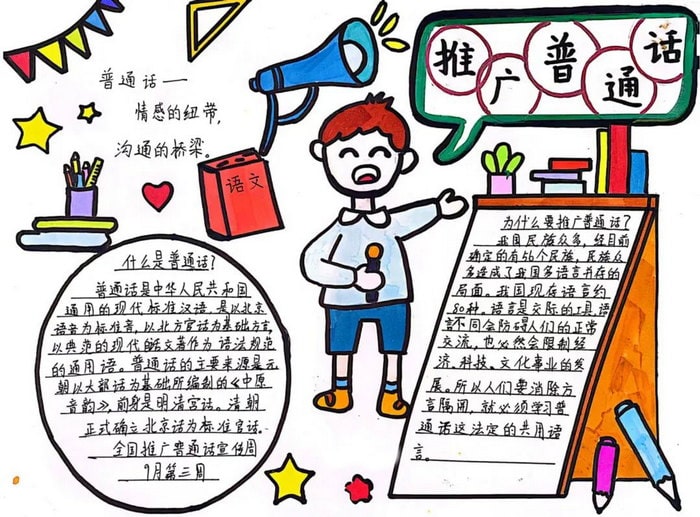 推广普通话
普通话——
情感的纽带，
沟通的桥梁。
语文
什么是普通话？
普通话是中华人民共和国
通用的现代标准汉语。是以北京
语音为标准音，以北方官话为基础方言，
以典范的现代白话文著作为语法规范
的通用语。普通话的主要来源是元
朝以大都话为基础所编制的《中原
音韵》，前身是明清官话。清朝
正式确立北京话为标准官话。
全国推广普通话宣传周
9月第三周
为什么要推广普通话？
我国民族众多，经目前
确定的有56个民族，民族众
多造成了我国多语言并存的
局面。我国现在语言约
80种。语言是交际的工具，语
言不同会防碍人们的正常
交流，也必然会限制经
济、科技、文化事业的发
展。所以人们要消除方
言隔阂，就必须学习普
通话这法定的共用语
言。